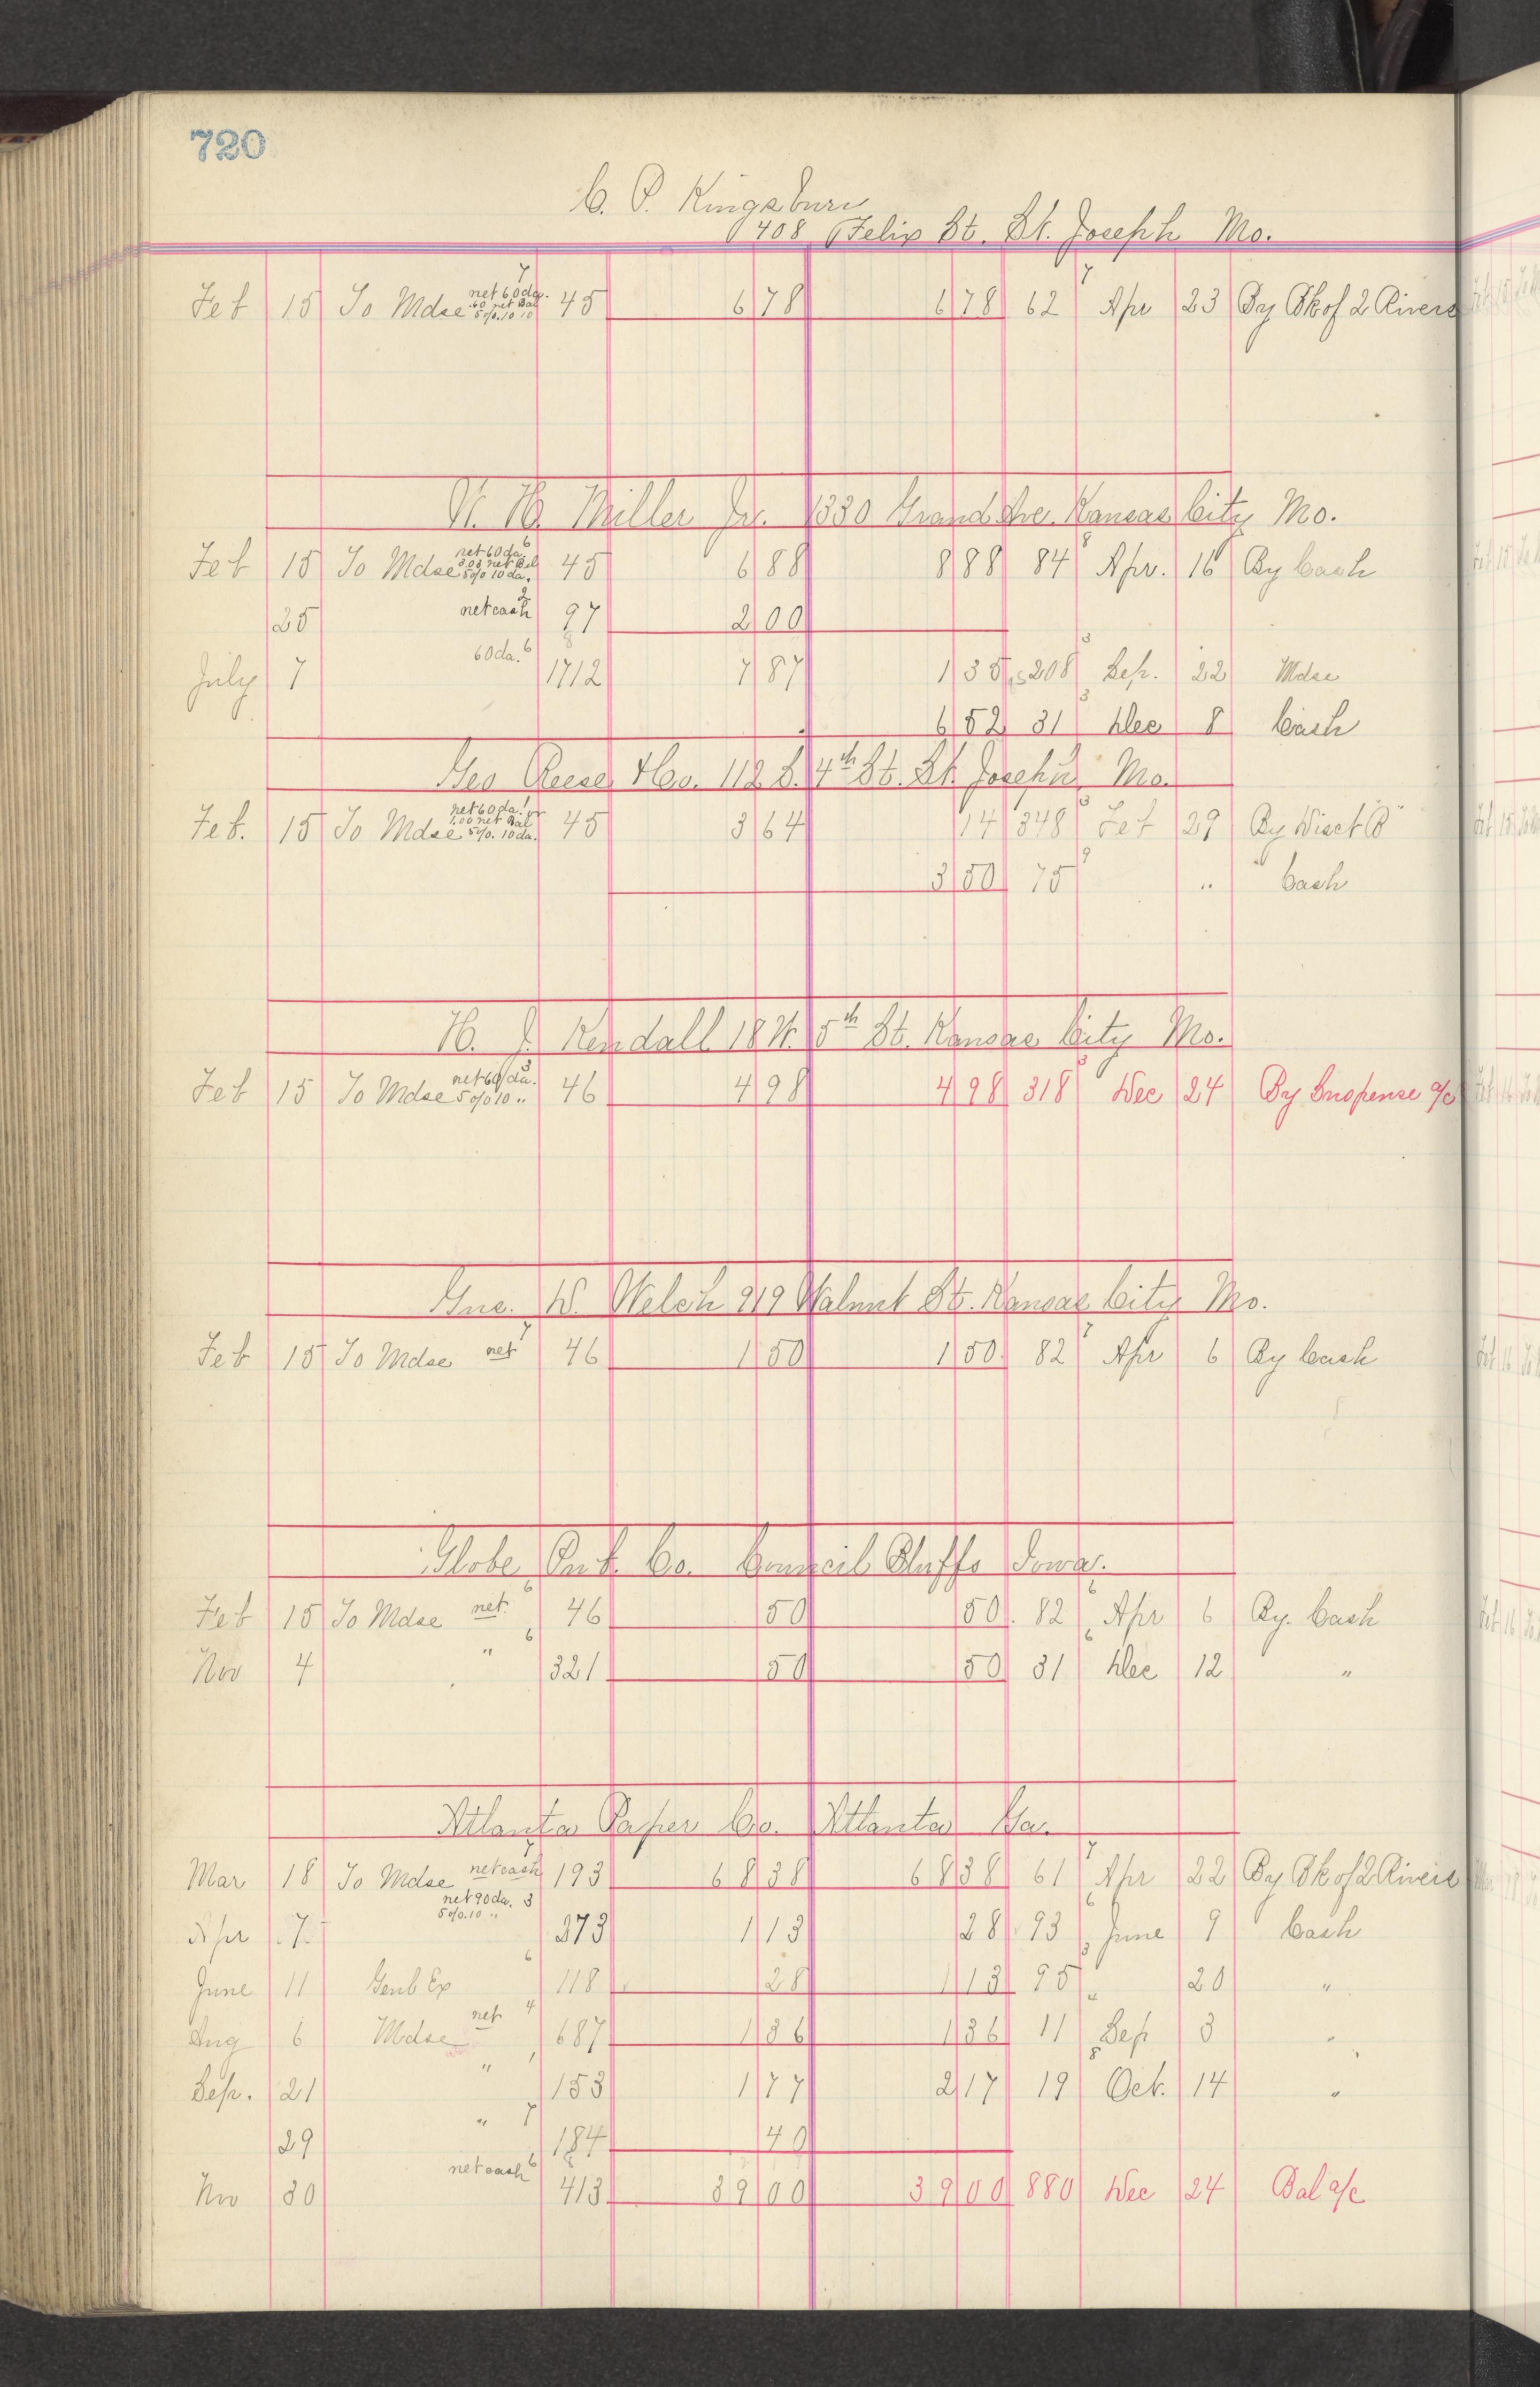 720
C. P. Kingsbury
408 Felix St. St. Joseph Mo.
7 net 60 da. 7
Feb 15 To Mdse .60 net Bal 5% 10 45 6 78 6 78 62 Apr 23 By Bk of 2 Rivers
W. H. Miller Jr. 1330 Grand Ave. Kansas City Mo.
net 60 da. 6
Feb 15 To Mdse 3.00 net Bal 5% 10 da. 45 6 88 8 88 84 Apr. 16 By Cash
25 net cash 2 97 2 00
July 7 60 da. 6 1712 7 87 1 35 208 Sep. 22 Mdse
6 52 31 Dec 8 Cash
Geo Reese & Co. 112 S. 4th St. St. Joseph Mo.
net 60 da.
Feb. 15 To Mdse 1.00 net Bal 5% 10 da. 45 3 64 14 348 Feb 29 By Disct B
3 50 75 " Cash
H. J. Kendall 18 W. 5th St. Kansas City Mo.
net 60 da.
Feb 15 To Mdse 5% 10 " 46 4 98 4 98 318 Dec 24 By Suspense a/c
Jno. W. Welch 919 Walnut St. Kansas City Mo.
Feb 15 To Mdse net 46 1 50 1 50 82 Apr 6 By Cash
Globe Pub. Co. Council Bluffs Iowa.
Feb 15 To Mdse net 46 50 50 82 Apr 6 By. Cash
Nov 4 " 321 50 50 31 Dec 12 "
Atlanta Paper Co. Atlanta Ga.
Mar 18 To Mdse net cash 193 68 38 68 38 61 Apr 22 By Bk of 2 Rivers
net 90 da. 3
5% 10 "
Apr 7 373 1 13 28 93 June 9 Cash
June 11 Genl Ex 118 28 1 13 95 " 20 "
Aug 6 Mdse net 4 687 1 36 1 36 11 Sep 3 "
Sep. 21 " 153 1 77 2 17 19 Oct. 14 "
29 " 7 184 40
Nov 30 net cash 6 413 39 00 39 00 880 Dec 24 Bal a/c